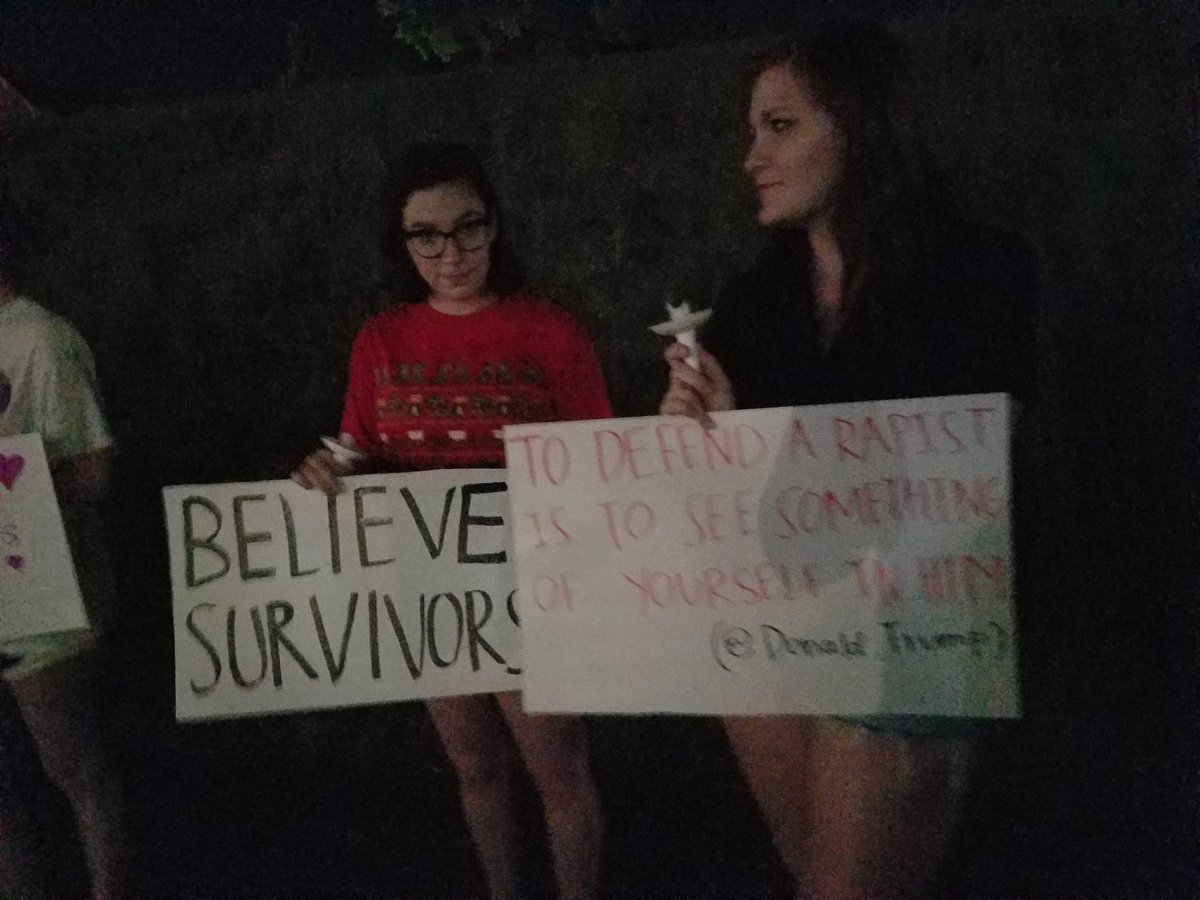 S
BELIEVE
SURVIVORS
TO DEFEND A RAPIST
IS TO SEE SOMETHING
OF YOURSELF IN HIM
(@Donald Trump)